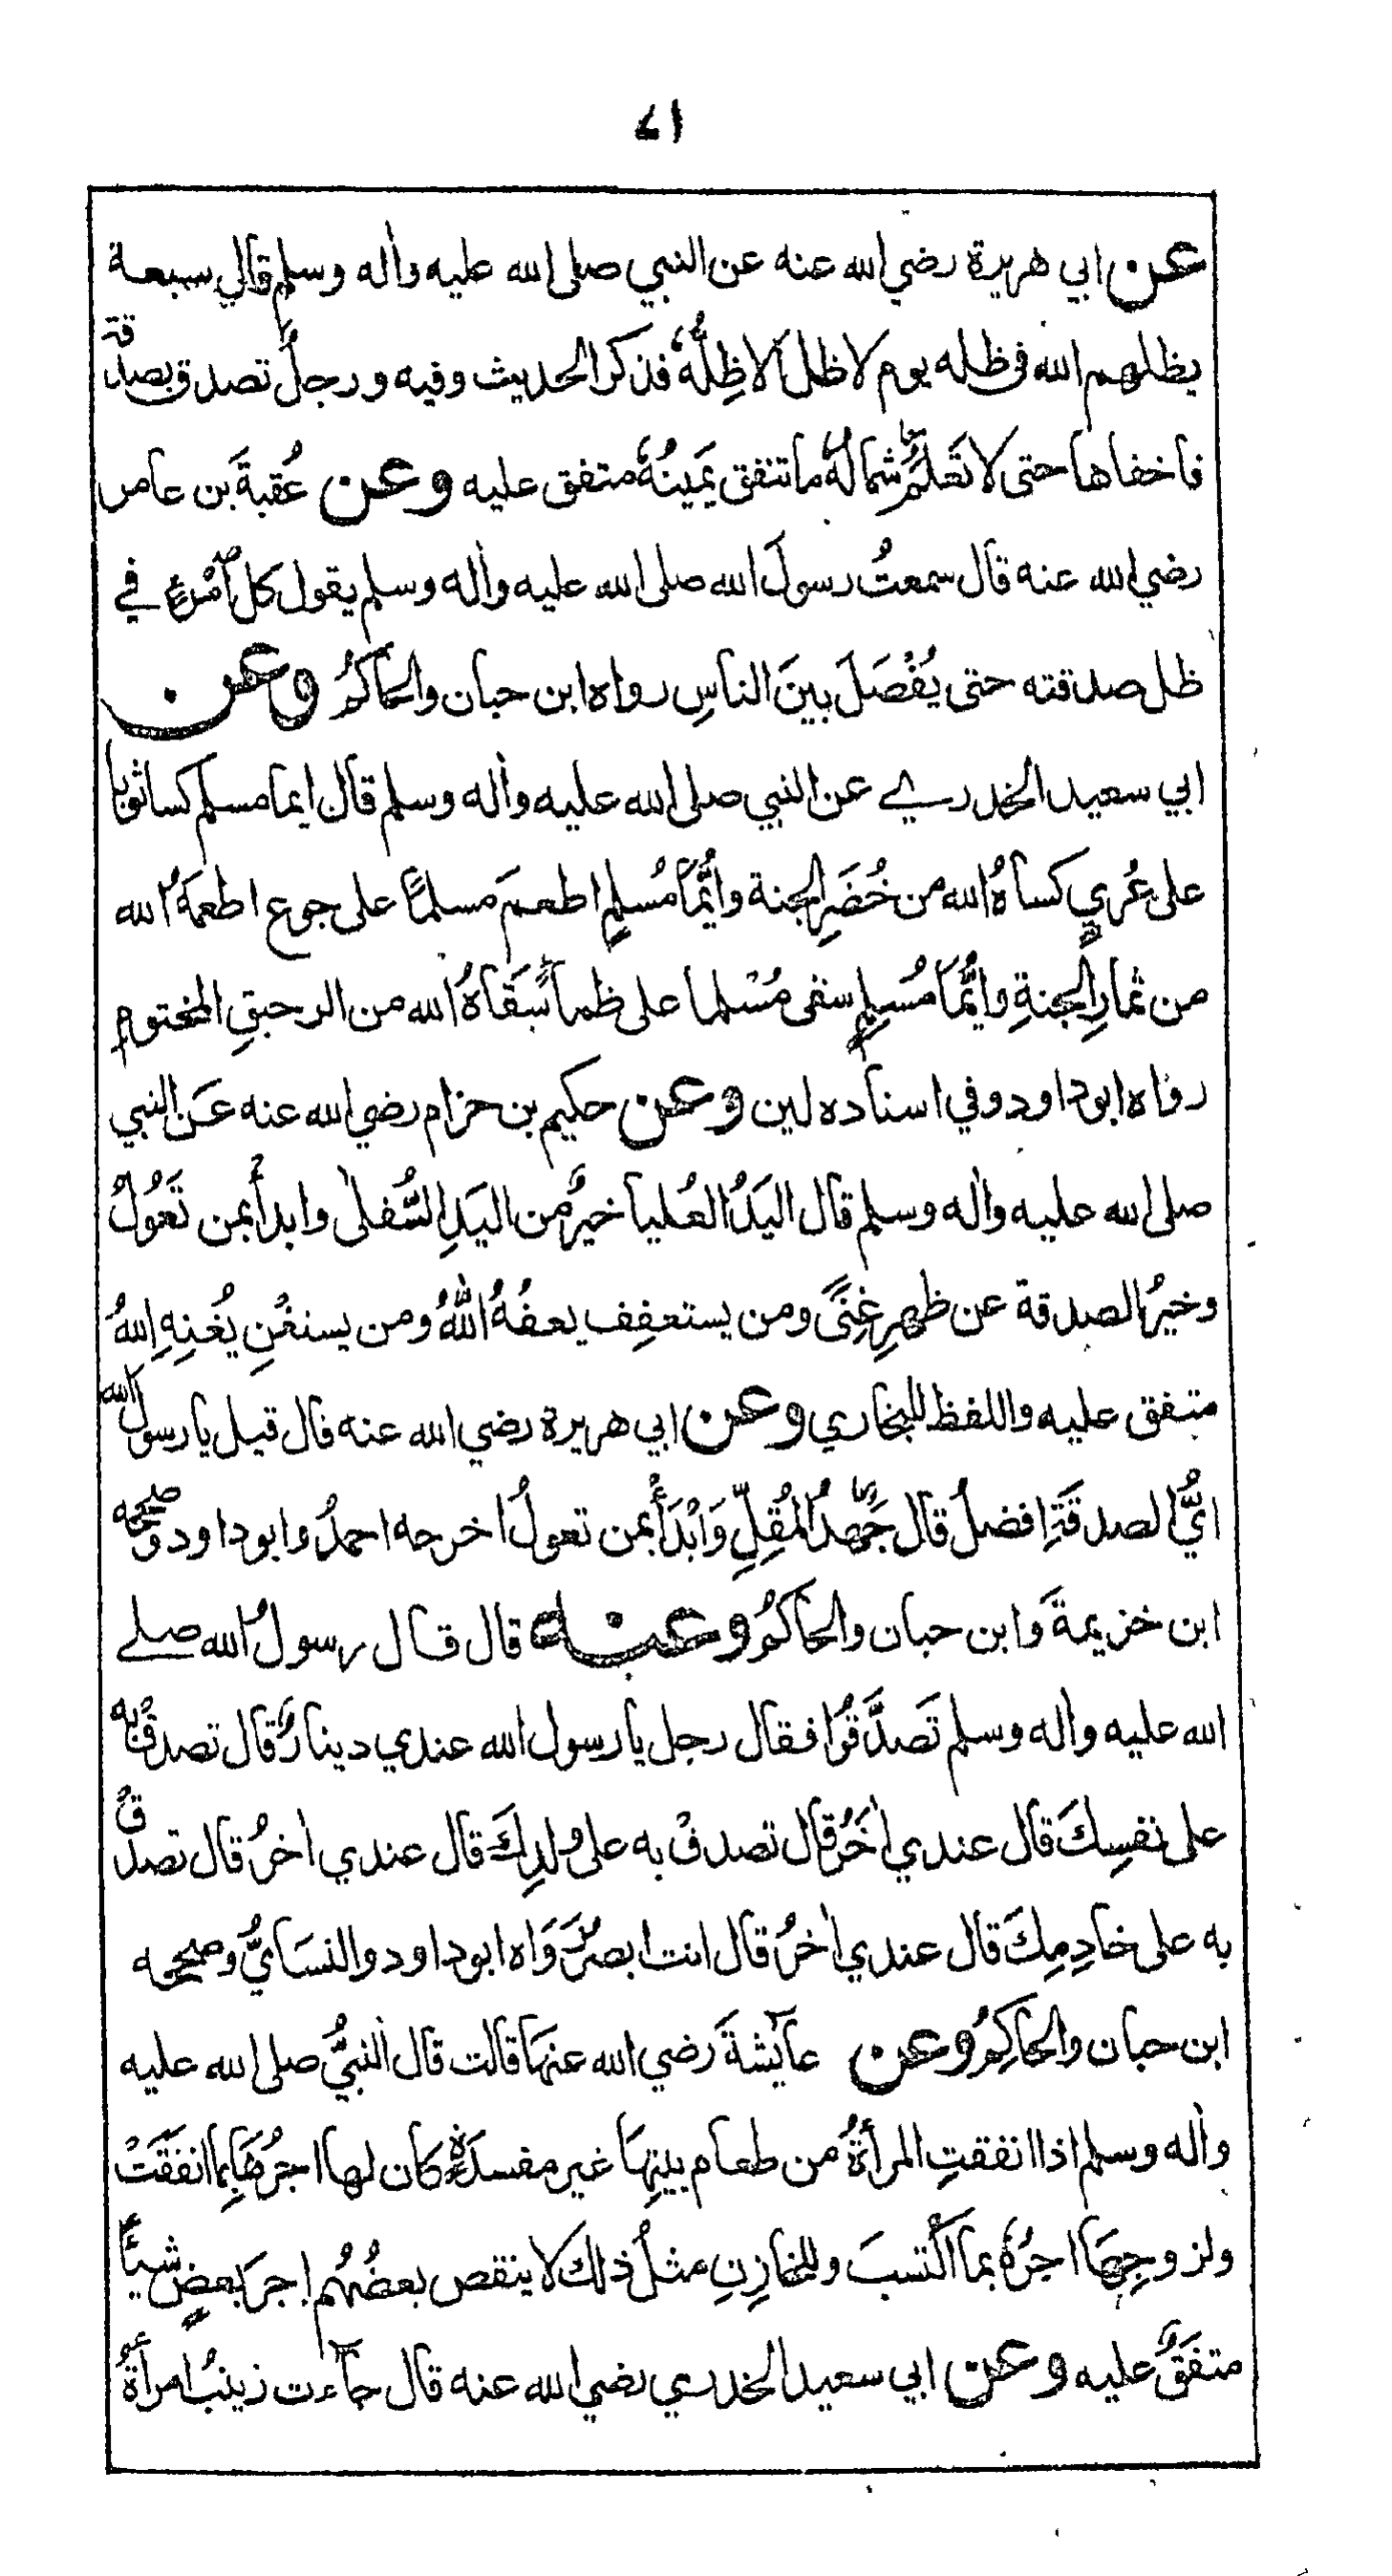 ٧١
عن ابي هريرة رضي الله عنه عن النبي صلى الله عليه واٰله وسلم قال سبعة
يظلهم الله فى ظله يوم لا ظل الا ظِلُّهُ فذكر الحديث وفيه ورجلٌ تصدق بصدقة
فاخفاها حتى لا تَعلَمَ شمالُهُ ما تنفق يَمينُهُ متفق عليه وعن عُقبةَ بن عامر
رضي الله عنه قال سمعتُ رسولَ الله صلى الله عليه واٰله وسلم يقول كل امْرِءٍ في
ظل صدقته حتى يُفْصَلَ بينَ الناسِ رواه ابن حبان والحاكمُ وعن
ابي سعيد الخدري عن النبي صلى الله عليه واٰله وسلم قال ايما مسلم كسا ثوبا
على عُريٍ كساهُ الله من خُضَرِ الجنة وايُّمَا مُسلمٍ اطعمَ مسلمًا على جوع اطعمهُ الله
من ثمارِ الجنةِ وايُّمَا مُسلمٍ سقى مُسْلما على ظمأ سَقَاهُ الله من الرحيقِ المختوم
رواه ابوداود وفي اسناده لين وعن حكيم بن حزام رضي الله عنه عن النبي
صلى الله عليه واٰله وسلم قال اليَدُ العُليا خيرٌ من اليَدِ السُّفلىٰ وابدأ بمن تَعُولُ
وخيرُ الصدقة عن ظهرِ غِنًى ومن يستعفِف يعفهُ اللّٰهُ ومن يستغْنِ يُغنِهِ اللهُ
متفق عليه واللفظ للبخاري وعن ابي هريرة رضي الله عنه قال قيل يا رسول الله
ايُّ الصدقَةِ افضلُ قال جُهدُ المُقِلِّ وَابْدَأ بمن تعولُ اخرجه احمدُ وابوداود وصححه
ابن خزيمةَ وابن حبان والحاكمُ وعنه قال قال رسولُ الله صلے
الله عليه واٰله وسلم تَصدَّقُوا فقال رجل يا رسول الله عندي دينارٌ قال تصدقْ به
على نفسِكَ قال عندي اٰخَرُ قال تصدقْ به على ولدِكَ قال عندي اٰخرُ قال تصدقْ
به على خادِمِكَ قال عندي اٰخرُ قال انت ابصرُ رَوَاه ابوداود والنسَايُّ وصححه
ابن حبان والحاكِمُ وعن عايٓشةَ رضي الله عنهَا قالت قال النبيُّ صلى الله عليه
واٰله وسلم اذا انفقتِ المرأةُ من طعام بيتِهَا غير مفسدَةٍ كان لها اجرُهَا بِما انفَقَتْ
ولزوجِهَا اجرُهُ بما اكْتسبَ وللخازِنِ مثلُ ذلك لا ينقص بعضُهُم اجرَ بعضٍ شيئًا
متفَقٌ عليه وعن ابي سعيد الخدري رضي الله عنه قال جآءت زينبُ امرأةُ